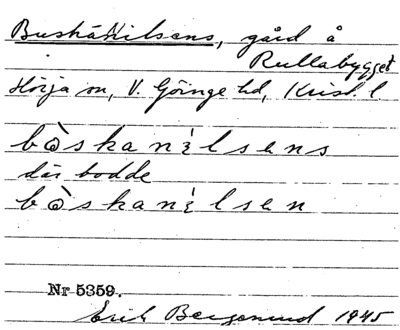 Buskanilsens, gård å
Rullabygget
Hörja sn, V. Göinge hd, Krist. l.
bòskanilsens
där bodde
bòskanilsen
Nr 5359.
Erik 1945